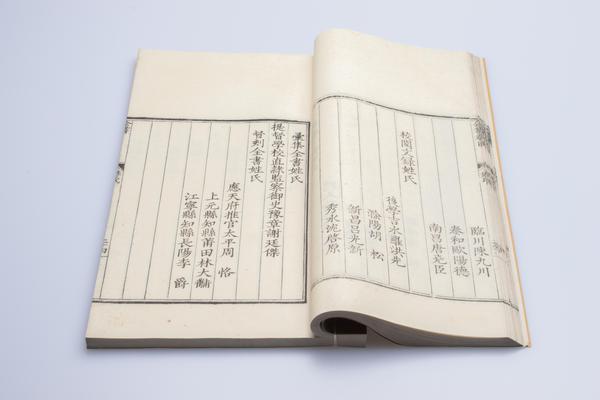 臨川陳九川
泰和歐陽德
南昌唐堯臣
校閱文錄姓氏
後學吉水羅洪先
滁陽胡 松
新昌呂光新
秀水沈啓原
彙集全書姓氏
提督學校直隸監察御史豫章謝廷傑
督刻全書姓氏
應天府推官太平周 恪
上元縣知縣莆田林大黼
江寧縣知縣長陽李 爵